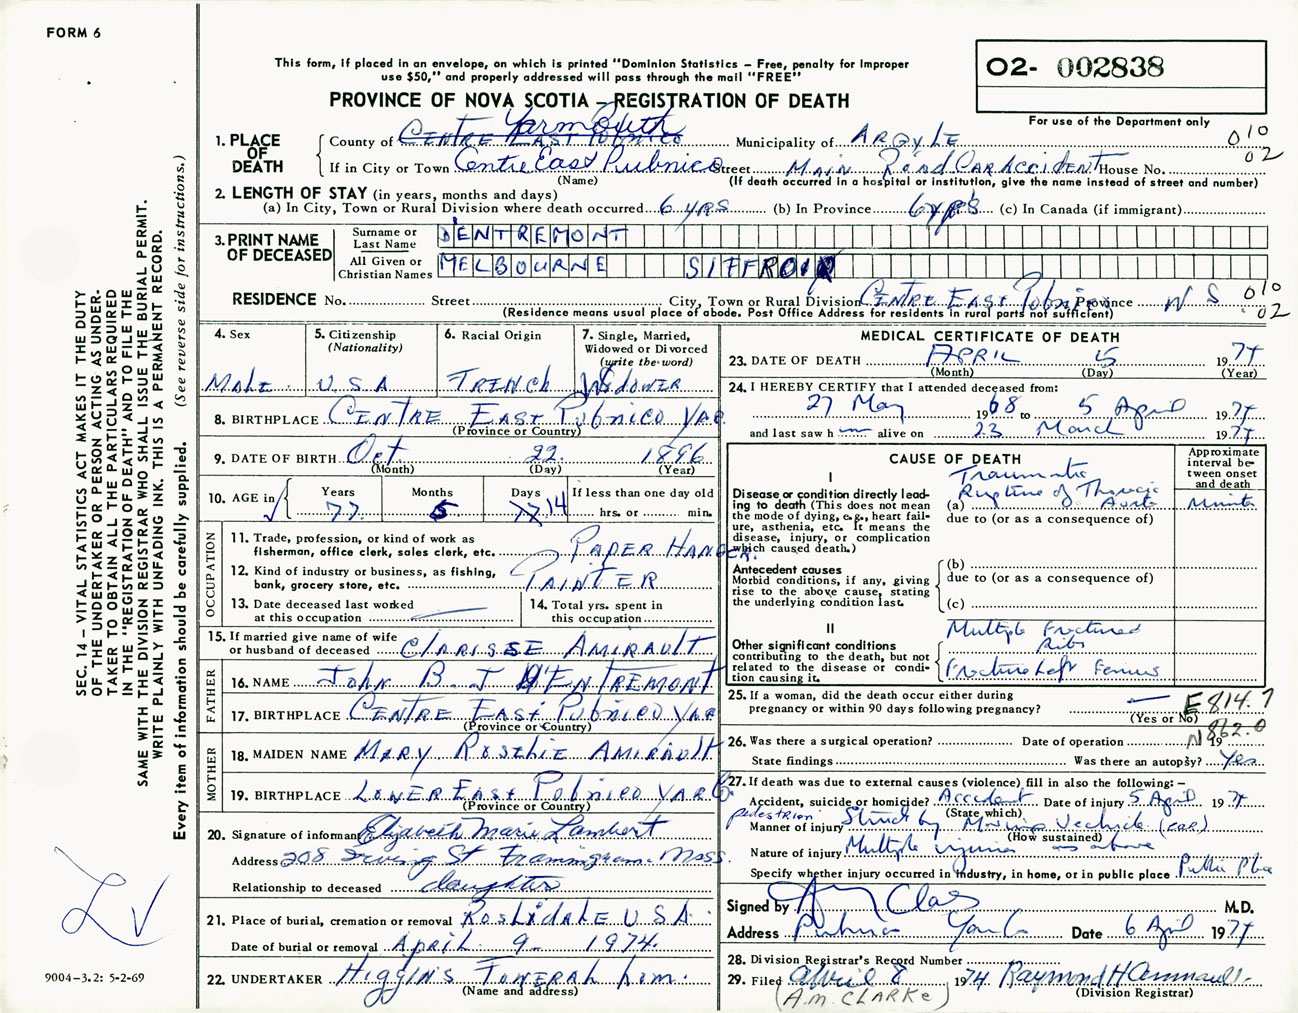 FORM 6
This form, if placed in an envelope, on which is printed "Dominion Statistics – Free, penalty for improper
use $50," and properly addressed will pass through the mail "FREE"
O2- 002838
PROVINCE OF NOVA SCOTIA – REGISTRATION OF DEATH
For use of the Department only
1. PLACE OF DEATH
County of Centre East Pubnico Yarmouth Municipality of ARGYLE 010
If in City or Town Centre East Pubnico Street Main Road Car Accident House No. 02
(Name) (If death occurred in a hospital or institution, give the name instead of street and number)
2. LENGTH OF STAY (in years, months and days)
(a) In City, Town or Rural Division where death occurred 6 yrs (b) In Province 6 yrs (c) In Canada (if immigrant)
3. PRINT NAME OF DECEASED
Surname or Last Name D'ENTREMONT
All Given or Christian Names MELBOURNE SIFFROI
RESIDENCE No. Street City, Town or Rural Division Centre East Pubnico Province N S 010
(Residence means usual place of abode. Post Office Address for residents in rural parts not sufficient) 02
4. Sex
Male
5. Citizenship
(Nationality)
U.S.A
6. Racial Origin
French
7. Single, Married,
Widowed or Divorced
(write the word)
Widower
8. BIRTHPLACE Centre East Pubnico Yar
(Province or Country)
9. DATE OF BIRTH Oct 22 1896
(Month) (Day) (Year)
10. AGE in
Years 77
Months 5
Days 14
If less than one day old
hrs. or min.
OCCUPATION
11. Trade, profession, or kind of work as
fisherman, office clerk, sales clerk, etc. Paper Hanger
12. Kind of industry or business, as fishing,
bank, grocery store, etc. Painter
13. Date deceased last worked
at this occupation
14. Total yrs. spent in
this occupation
15. If married give name of wife
or husband of deceased Clarisse Amirault
FATHER
16. NAME John B. J D'Entremont
17. BIRTHPLACE Centre East Pubnico Yar
(Province or Country)
MOTHER
18. MAIDEN NAME Mary Roselie Amirault
19. BIRTHPLACE Lower East Pubnico Yar Co.
(Province or Country)
20. Signature of informant Elizabeth Marie Lambert
Address 208 Irving St Framingham Mass.
Relationship to deceased daughter
21. Place of burial, cremation or removal Roslidale U S A
Date of burial or removal April 9 1974.
22. UNDERTAKER Higgins Funeral hom.
(Name and address)
MEDICAL CERTIFICATE OF DEATH
23. DATE OF DEATH April 5 1974
(Month) (Day) (Year)
24. I HEREBY CERTIFY that I attended deceased from:
27 May 1968 to 5 April 1974
and last saw h alive on 23 March 1974
CAUSE OF DEATH
Approximate interval between onset and death
I
Disease or condition directly leading to death (This does not
mean the mode of dying, e.g., heart failure, asthenia, etc. It means the
disease, injury, or complication
which caused death.)
Traumatic
Rupture of Thoracic
(a) Aorta
due to (or as a consequence of)
Antecedent causes
Morbid conditions, if any, giving
rise to the above cause, stating
the underlying condition last.
(b)
due to (or as a consequence of)
(c)
II
Other significant conditions
contributing to the death, but not
related to the disease or condition causing it.
Multiple Fractured
Ribs
Fracture Left Femur
25. If a woman, did the death occur either during
pregnancy or within 90 days following pregnancy?
(Yes or No)
E 814.7
N 862.0
26. Was there a surgical operation? Date of operation 19
State findings Was there an autopsy? Yes
27. If death was due to external causes (violence) fill in also the following: –
Accident, suicide or homicide? Accident Date of injury 5 April 1974
(State which)
pedestrian
Manner of injury Struck by Moving Vechicle (car)
(How sustained)
Nature of injury Multiple injuries as above
Specify whether injury occurred in industry, in home, or in public place Public Place
Signed by M.D.
Address Pubnico Date 6 April 1974
28. Division Registrar's Record Number
29. Filed April 8 1974 Raymond H Amirault
(A.M. CLARKE) (Division Registrar)
SEC. 14 – VITAL STATISTICS ACT MAKES IT THE DUTY
OF THE UNDERTAKER OR PERSON ACTING AS UNDER-
TAKER TO OBTAIN ALL THE PARTICULARS REQUIRED
IN THE "REGISTRATION OF DEATH" AND TO FILE THE
SAME WITH THE DIVISION REGISTRAR WHO SHALL ISSUE THE BURIAL PERMIT.
WRITE PLAINLY WITH UNFADING INK. THIS IS A PERMANENT RECORD.
Every item of information should be carefully supplied. (See reverse side for instructions.)
9004-3.2: 5-2-69